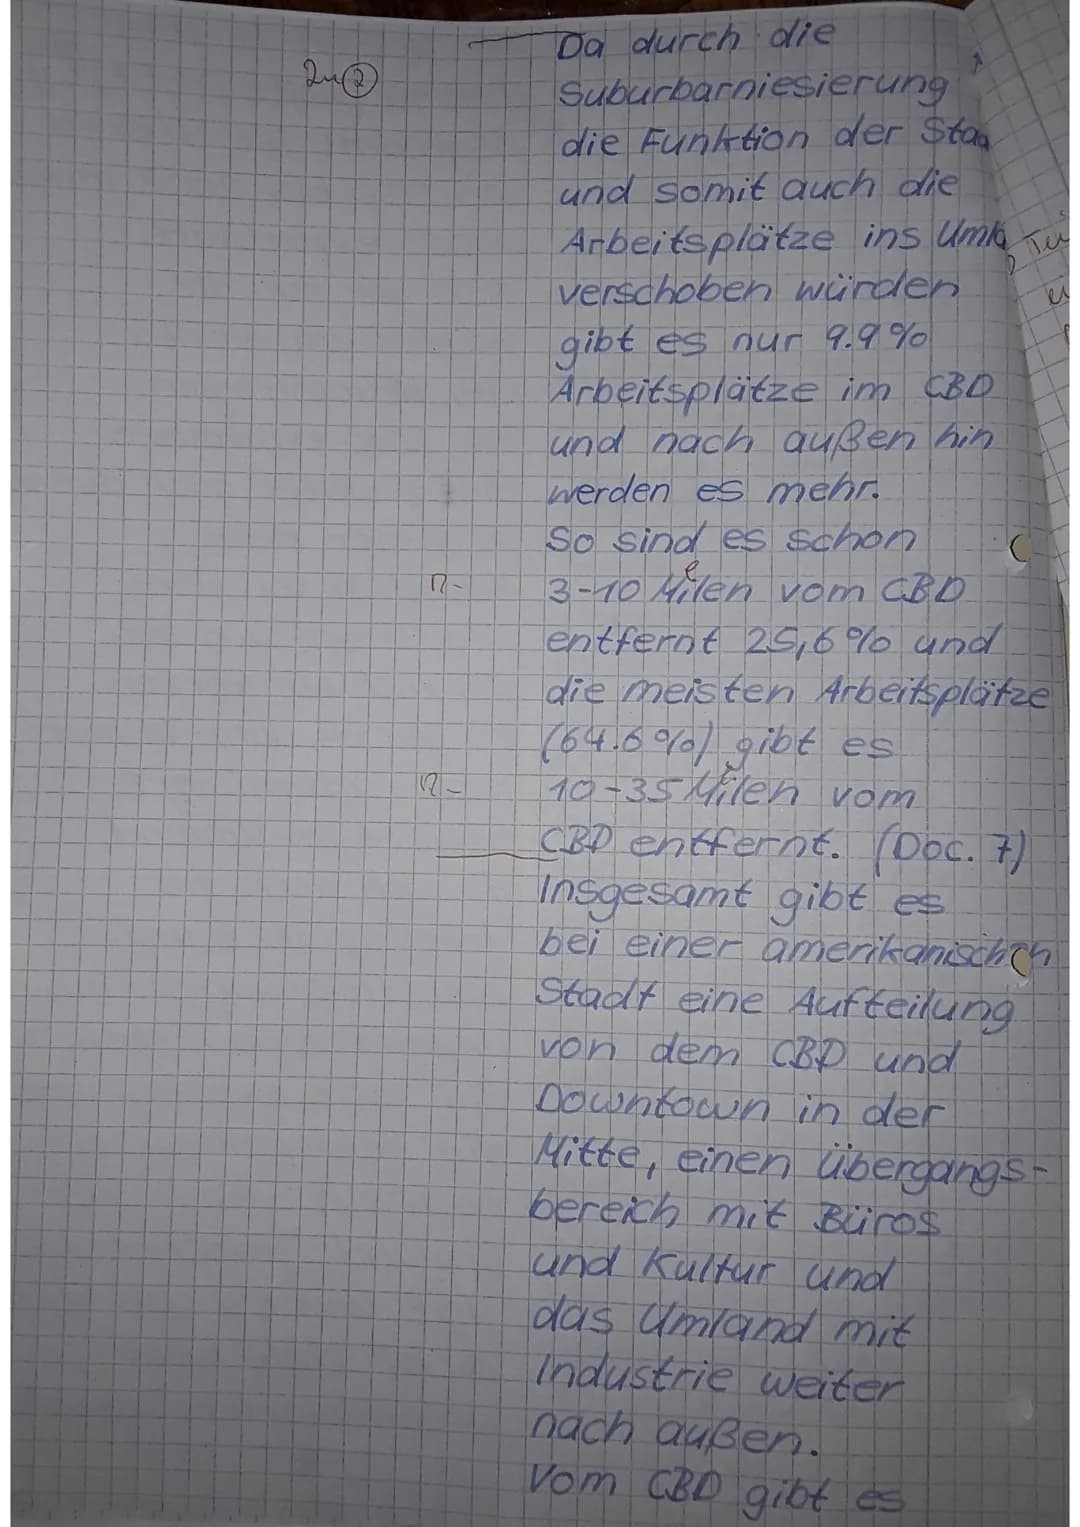 Da durch die
zu ②
Suburbarniesierung
die Funktion der
und somit auch die
Arbeitsplätze ins
verschoben würden
gibt es nur 9.9%
Arbeitsplätze im CBD
und nach außen hin
werden es mehr.
So sind es schon
R- 3-10 Meilen vom CBD
entfernt 25,6% und
die meisten Arbeitsplätze
(64.6%) gibt es
R- 10-35 Meilen vom
CBD entfernt. (Doc. 7)
Insgesamt gibt es
bei einer amerikanischen
Stadt eine Aufteilung
von dem CBD und
Downtown in der
Mitte, einen Übergangs-
bereich mit Büros
und Kultur und
das Umland mit
Industrie weiter
nach außen.
Vom CBD gibt es